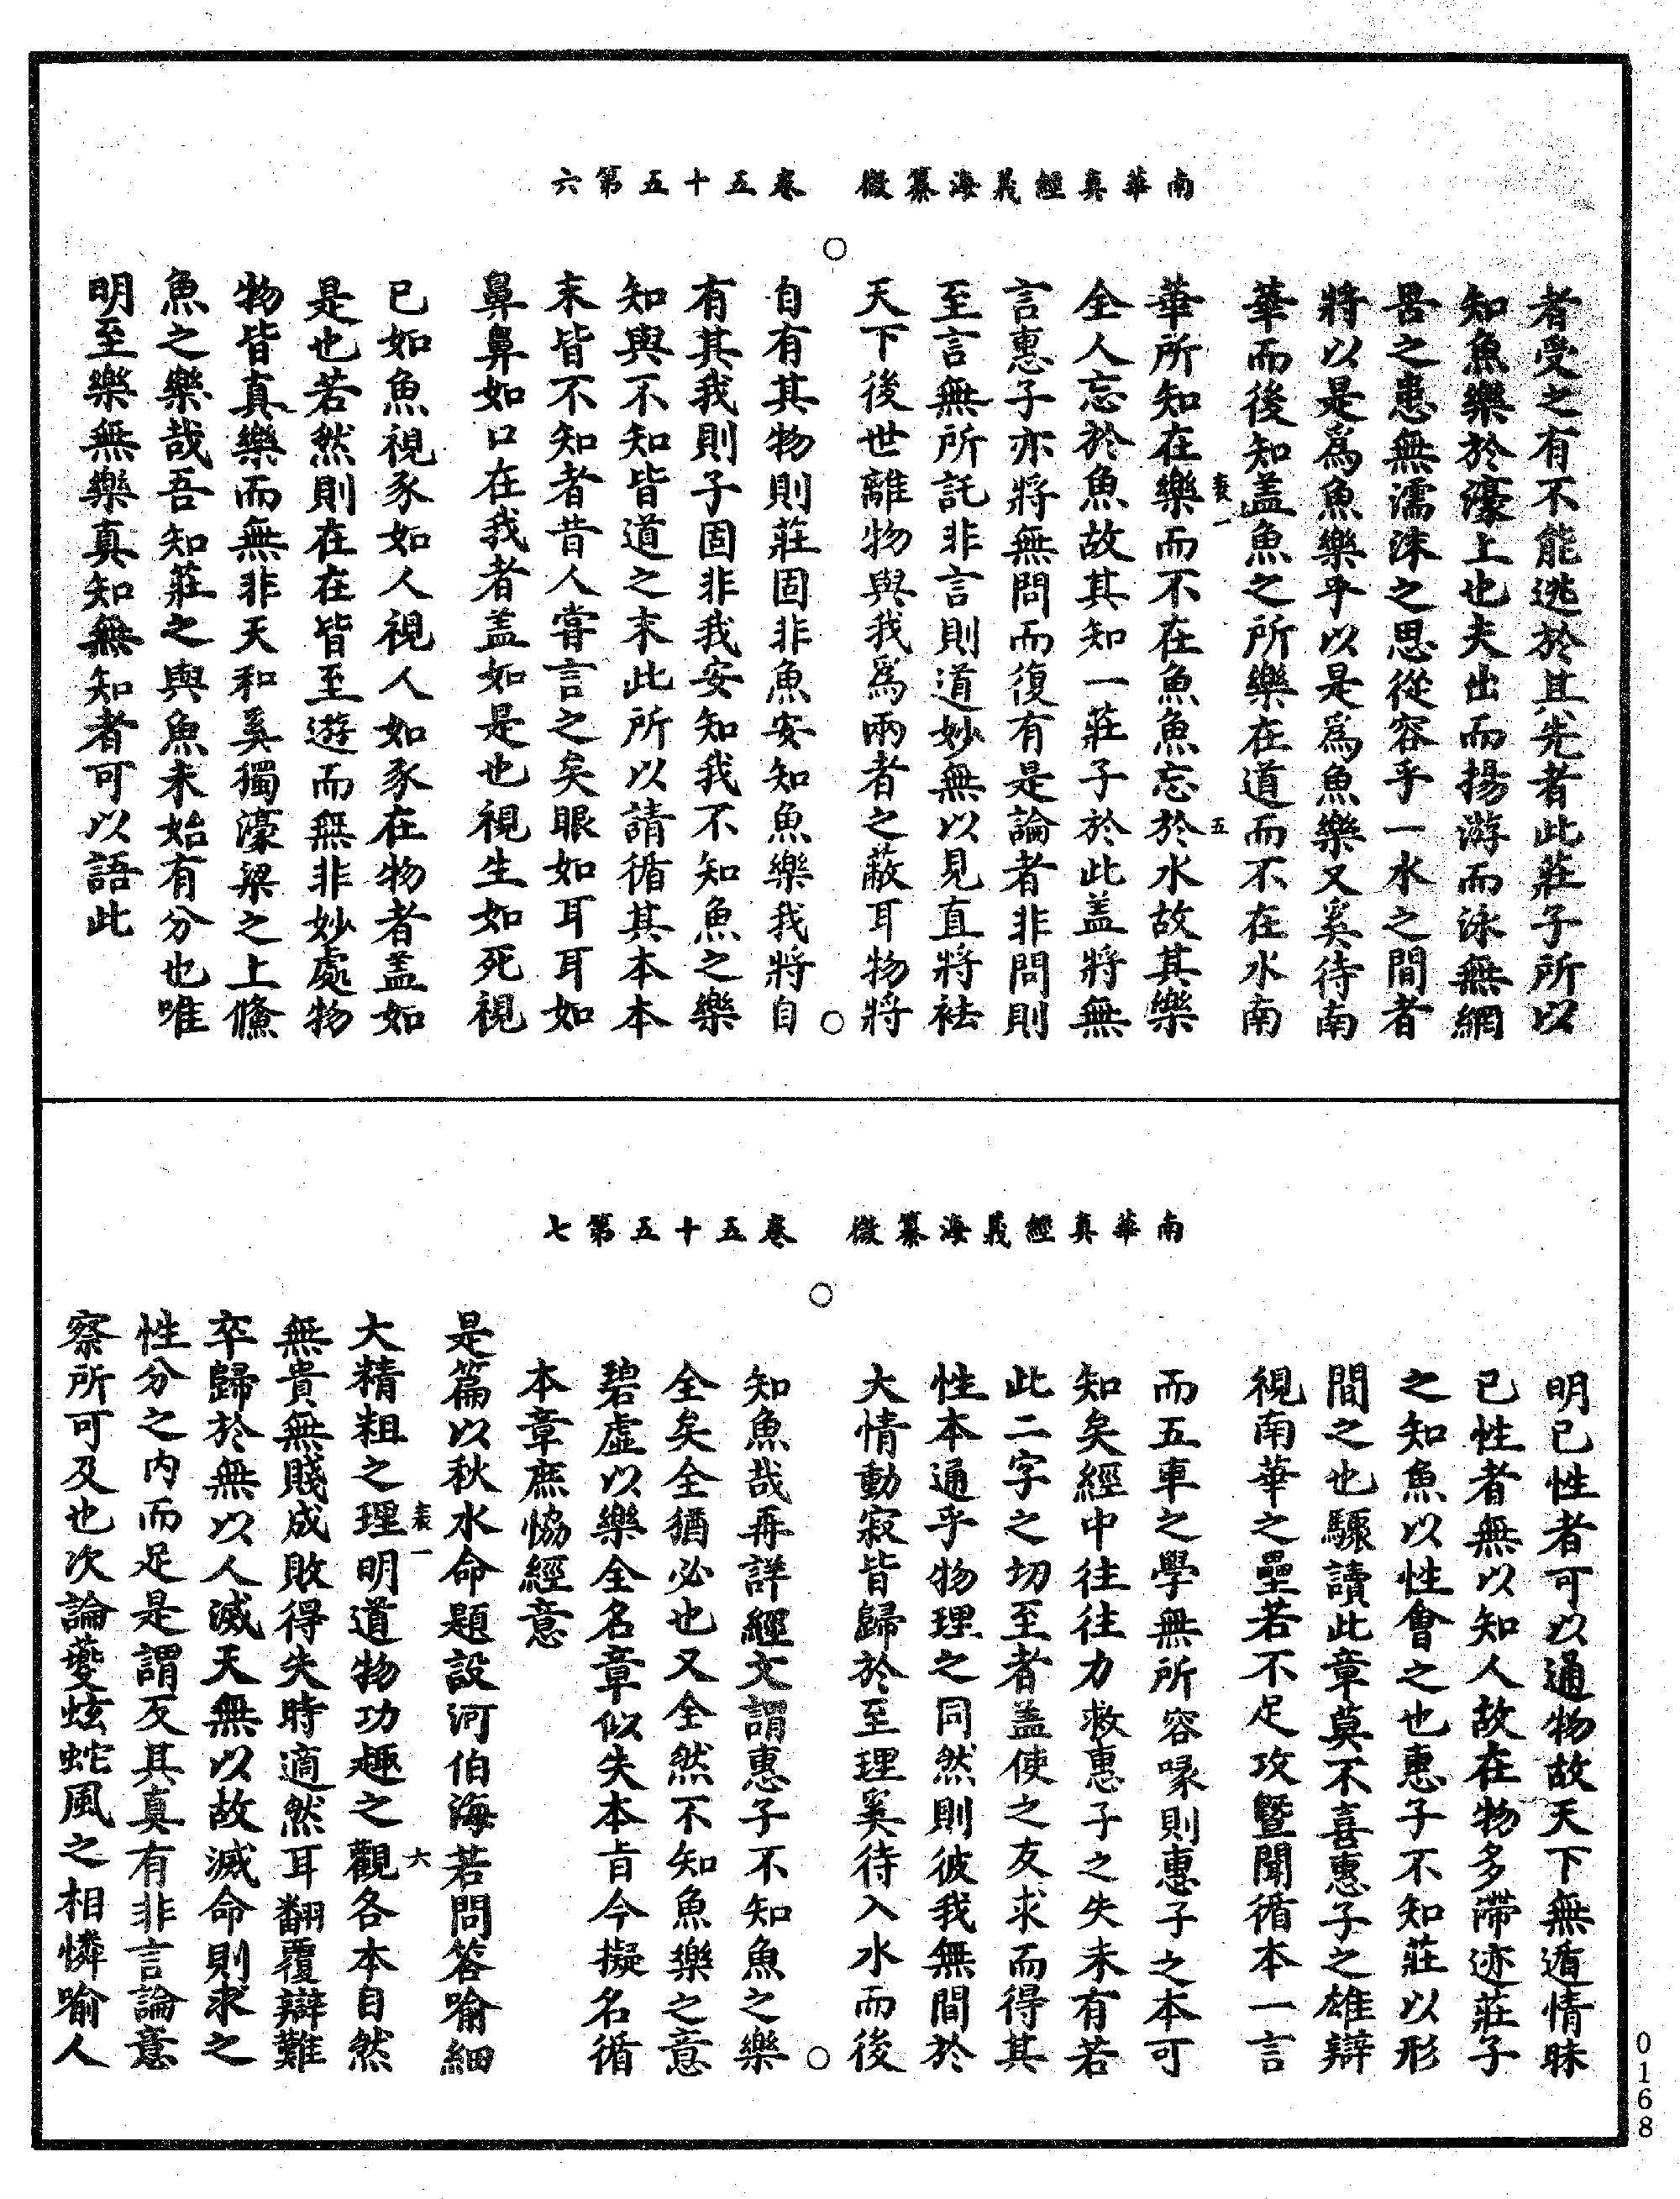 南華真經義海纂微　卷五十五第六
者受之有不能逃於其先者此莊子所以
知魚樂於濠上也夫出而揚游而泳無網
罟之患無濡沫之思從容乎一水之間者
將以是為魚樂乎以是為魚樂又奚待南
華而後知盖魚之所樂在道而不在水南
華所知在樂而不在魚魚忘於水故其樂
全人忘於魚故其知一莊子於此盖將無
言惠子亦將無問而復有是論者非問則
至言無所託非言則道妙無以見直將袪
天下後世離物與我為兩者之蔽耳物將
自有其物則莊固非魚安知魚樂我將自
有其我則子固非我安知我不知魚之樂
知與不知皆道之末此所以請循其本本
末皆不知者昔人甞言之矣眼如耳耳如
鼻鼻如口在我者盖如是也視生如死視
已如魚視豕如人視人如豕在物者盖如
是也若然則在在皆至遊而無非妙處物
物皆真樂而無非天和奚獨濠梁之上鯈
魚之樂哉吾知莊之與魚未始有分也唯
明至樂無樂真知無知者可以語此
表一
五
南華真經義海纂微　卷五十五第七
明已性者可以通物故天下無遁情昧
已性者無以知人故在物多滯迹莊子
之知魚以性會之也惠子不知莊以形
間之也驟讀此章莫不喜惠子之雄辯
視南華之壘若不足攻暨聞循本一言
而五車之學無所容喙則惠子之本可
知矣經中往往力救惠子之失未有若
此二字之切至者盖使之友求而得其
性本通乎物理之同然則彼我無間於
大情動寂皆歸於至理奚待入水而後
知魚哉再詳經文謂惠子不知魚之樂
全矣全猶必也又全然不知魚樂之意
碧虛以樂全名章似失本旨今擬名循
本章庶恊經意
是篇以秋水命題設河伯海若問荅喻細
大精粗之理明道物功趣之觀各本自然
無貴無賤成敗得失時適然耳翻覆辯難
卒歸於無以人滅天無以故滅命則求之
性分之内而足是謂反其真有非言論意
察所可及也次論夔蚿蛇風之相憐喻人
表一
六
0168